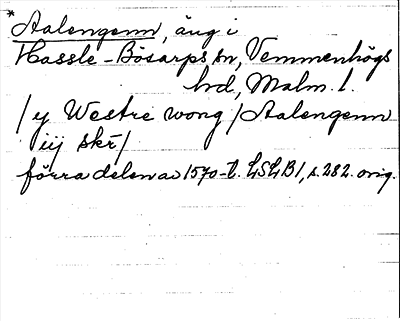 * Aalengenn, äng i
Hassle-Bösarps sn, Vemmenhögs
hd, Malm. l.
/y Westre wong/ Aalengenn
iij skr/
förra delen av 1570-t. LSLB 1, s. 282. orig.